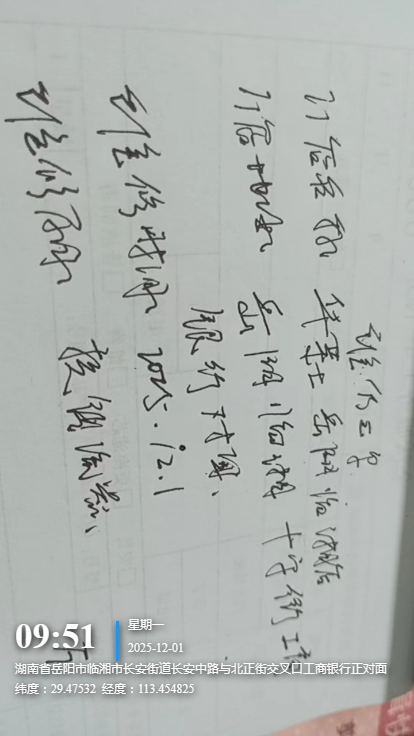 门店名称 华莱士岳阳临湘店
门店地址 岳阳临湘十字街工商
银行对面、
维修时间 2025.12.1
维修内容
09:51
星期一
2025-12-01
湖南省岳阳市临湘市长安街道长安中路与北正街交叉口工商银行正对面
纬度：29.47532 经度：113.454825